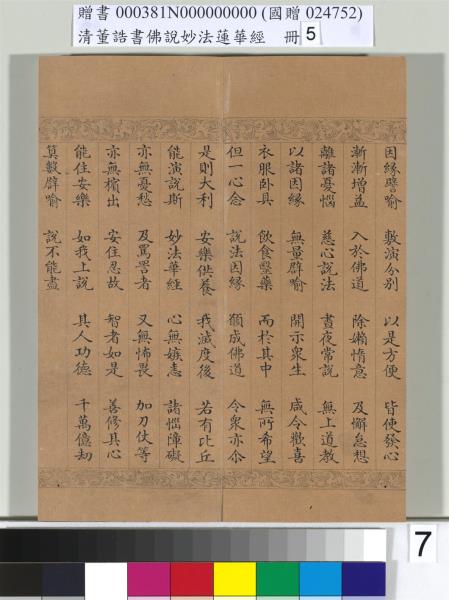 贈書 000381N000000000 (國贈 024752)
清董誥書佛說妙法蓮華經 冊 5
因緣譬喻 敷演分別 以是方便 皆使發心
漸漸增益 入於佛道 除嬾惰意 及懈怠想
離諸憂惱 慈心說法 晝夜常說 無上道教
以諸因緣 無量譬喻 開示眾生 咸令歡喜
衣服臥具 飲食醫藥 而於其中 無所希望
但一心念 說法因緣 願成佛道 令眾亦尒
是則大利 安樂供養 我滅度後 若有比丘
能演說斯 妙法華經 心無嫉恚 諸惱障礙
亦無憂愁 及罵詈者 又無怖畏 加刀仗等
亦無擯出 安住忍故 智者如是 善修其心
能住安樂 如我上說 其人功德 千萬億劫
算數譬喻 說不能盡
7